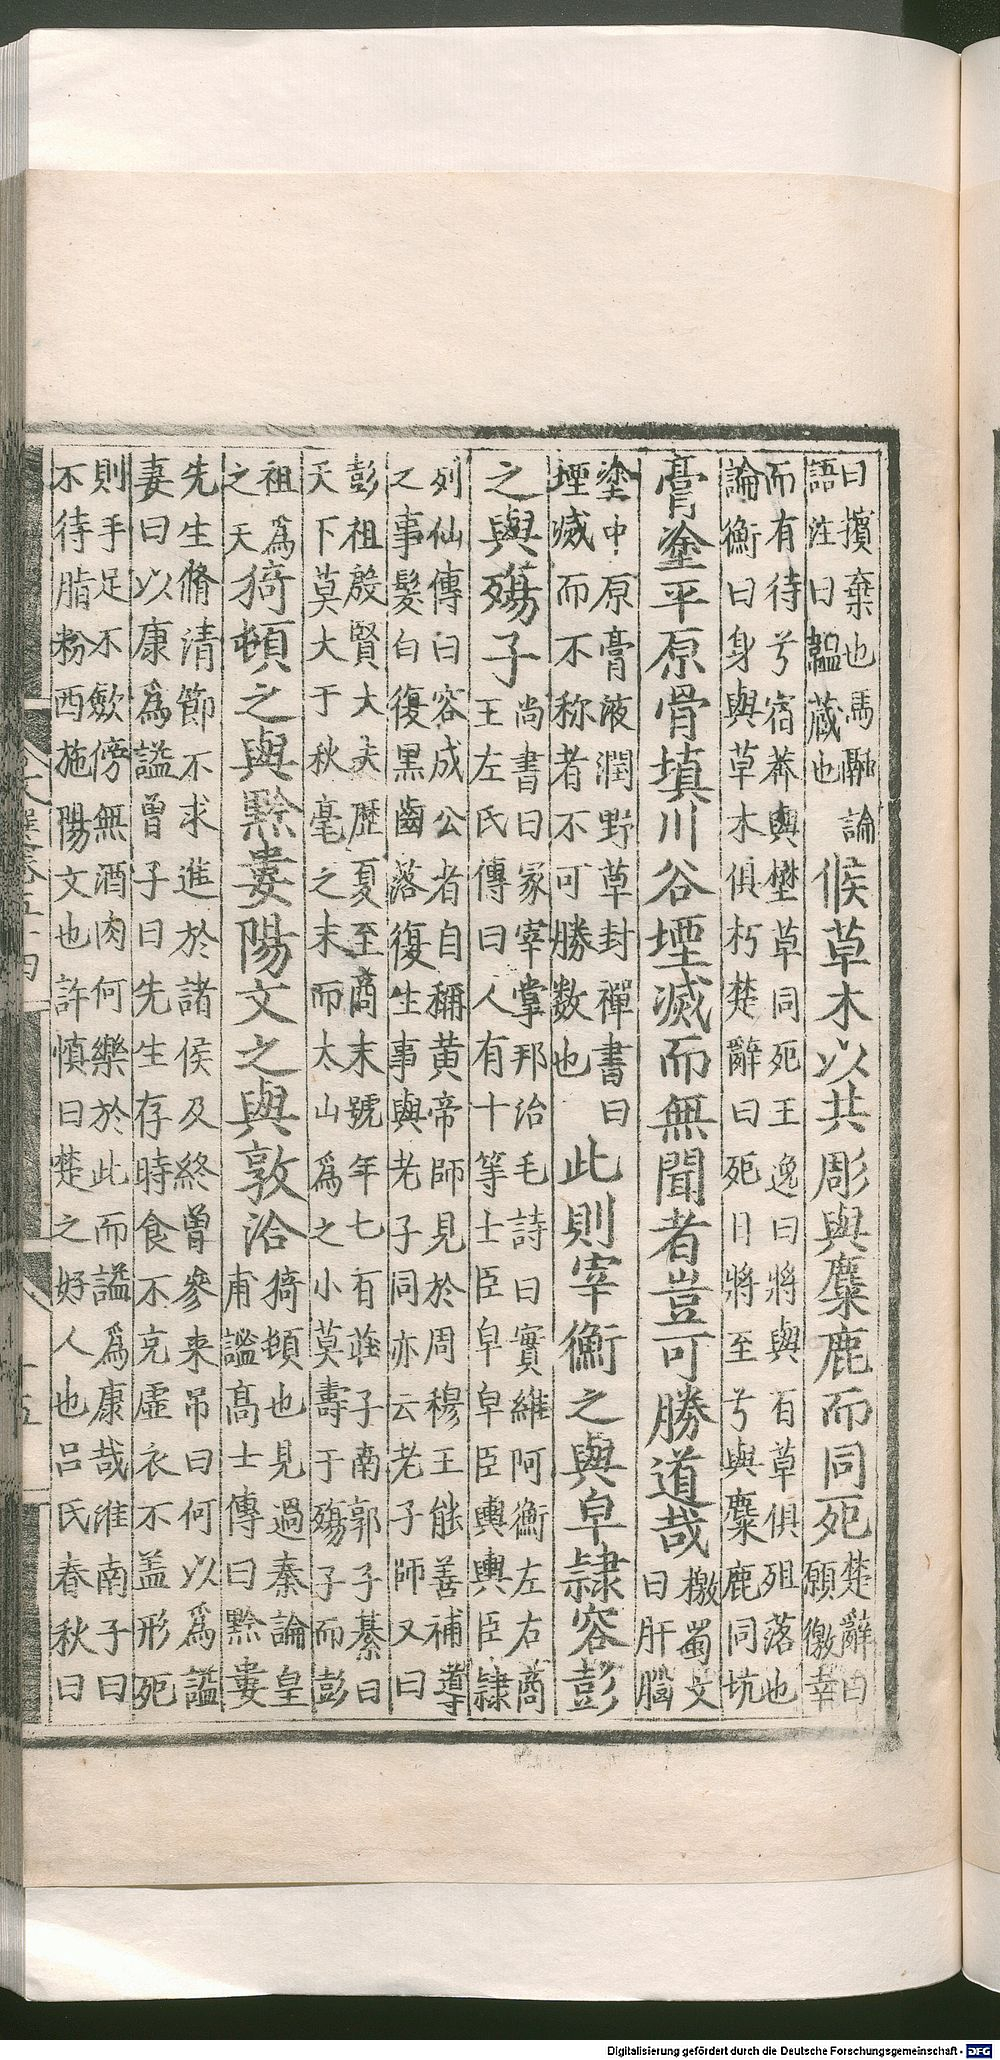 曰擯棄也馬融論
語注曰韞藏也
候草木以共彫與麋鹿而同死
楚辭曰
願徼幸
而有待兮宿莽與壄草同死王逸曰將與百草俱殂落也
論衡曰身與草木俱朽楚辭曰死日將至兮與麋鹿同坑
膏塗平原骨填川谷堙滅而無聞者豈可勝道哉
檄蜀文
曰肝腦
塗中原膏液潤野草封禪書曰
堙滅而不称者不可勝数也
此則宰衡之與皁隸容彭
之與殤子
尚書曰冢宰掌邦治毛詩曰實維阿衡左右商
王左氏傳曰人有十等士臣皁皁臣輿輿臣隸
列仙傳曰容成公者自稱黄帝師見於周穆王能善補導
之事髮白復黒齒落復生事與老子同亦云老子師又曰
彭祖殷賢大夫歷夏至商末號年七百莊子南郭子綦曰
天下莫大于秋毫之末而太山為之小莫壽于殤子而彭
祖為
之夭
猗頓之與黔婁陽文之與敦洽
猗頓也見過秦論皇
甫謐髙士傳曰黔婁
先生脩清節不求進於諸侯及終曾參来吊曰何以為謚
妻曰以康為謚曾子曰先生存時食不充虚衣不盖形死
則手足不歛傍無酒肉何樂於此而謚為康哉淮南子曰
不待脂粉西施陽文也許慎曰楚之好人也吕氏春秋曰
Digitalisierung gefördert durch die Deutsche Forschungsgemeinschaft - DFG